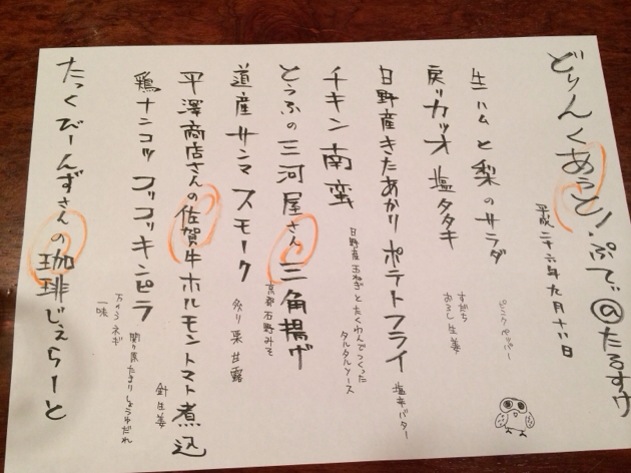 どりんくあうと！ぷてぃ＠たるすけ
平成二十六年九月十八日
生ハムと梨のサラダ
ピンクペッパー
戻りカツオ 塩タタキ
すだち
おろし生姜
日野産きたあかり ポテトフライ
塩辛バター
チキン南蛮
日野産玉ねぎとたくわんでつくった
タルタルソース
とうふの三河屋さん 三角揚げ
京都石野みそ
道産サンマ スモーク
炙り栗 甘露
平澤商店さんの佐賀牛ホルモントマト煮込
針生姜
鶏ナンコツ コッコッキンピラ
関ヶ原たまりしょうゆだれ
万のうネギ
一味
たっくびーんずさんの珈琲じぇらーと